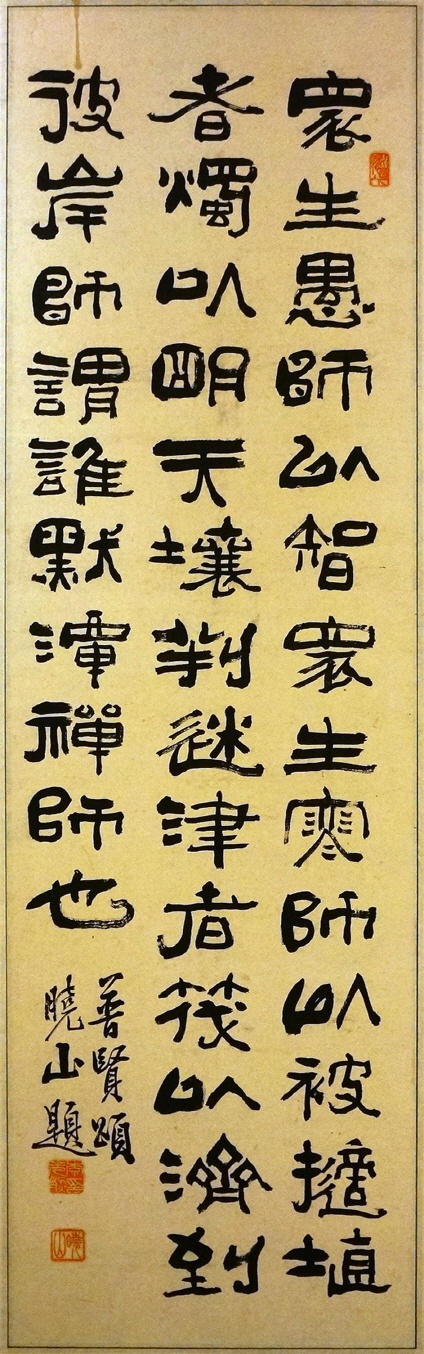 眾生愚師以智眾生寒師以被擿埴
者燭以明天壤判迷津者筏以濟到
彼岸師謂誰默潭禪師也
普賢頌
曉山題